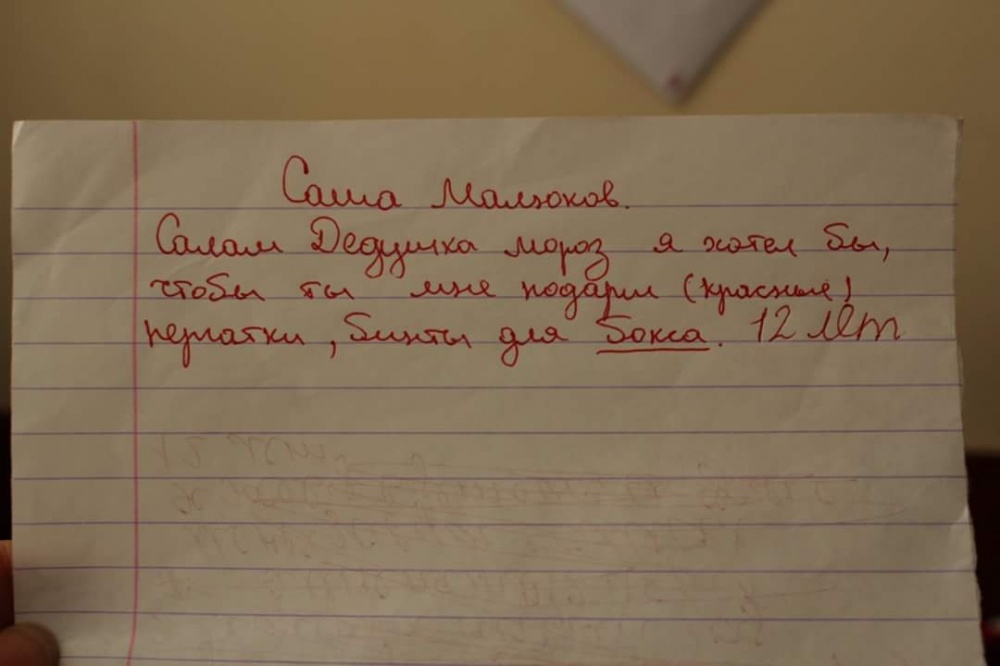 Саша Малюков.
Салам Дедушка мороз я хотел бы,
чтобы ты мне подарил (красные)
перчатки, бинты для бокса. 12 лет